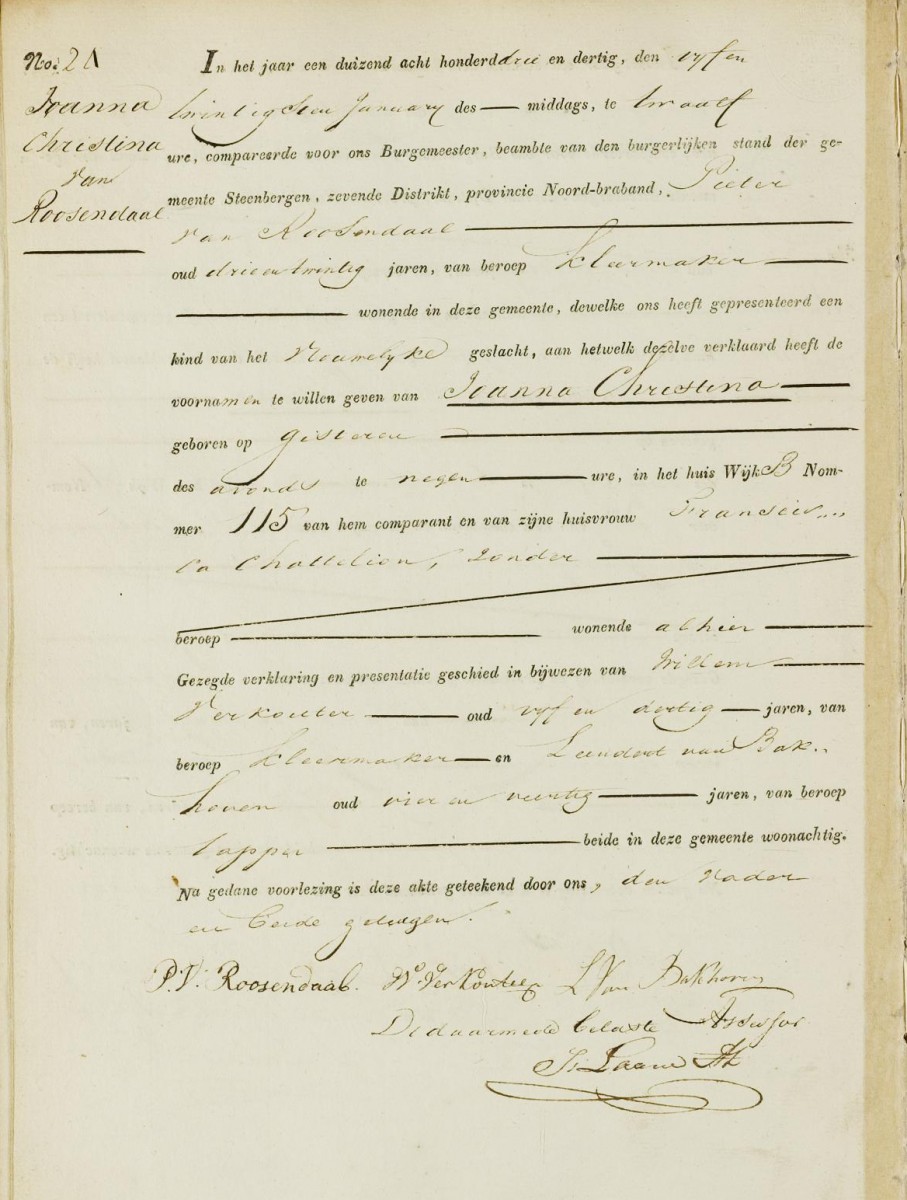 No. 21
Joanna
Christina
van
Roosendaal
In het jaar een duizend acht honderd drie en dertig, den vyf en
twintigsten January des — middags, te twaalf
ure, compareerde voor ons Burgemeester, beambte van den burgerlijken stand der ge-
meente Steenbergen, zevende Distrikt, provincie Noord-braband, Pieter
van Roosendaal
oud drie en twintig jaren, van beroep kleermaker
wonende in deze gemeente, dewelke ons heeft gepresenteerd een
kind van het Vrouwelyke geslacht, aan hetwelk dezelve verklaard heeft de
voornamen te willen geven van Joanna Christina
geboren op gisteren
des avonds te negen ure, in het huis Wijk B Nom-
mer 115 van hem comparant en van zijne huisvrouw Francis
ca Chattelion, zonder
beroep wonende alhier
Gezegde verklaring en presentatie geschied in bijwezen van Willem
Verkouter oud vyf en dertig jaren, van
beroep kleermaker en Leendert van Bak
hoven oud vier en veertig jaren, van beroep
tapper beide in deze gemeente woonachtig.
Na gedane voorlezing is deze akte geteekend door ons, den Vader
en beide getuigen.
P. V. Roosendaal. W. Verkouter L Van Bakhoven
De daarmede belaste Assessor
Laane